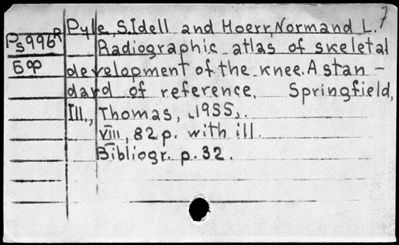 Pyle, S.Idell and Hoerr, Normand L.
Ps996R Radiographic atlas of skeletal
БФ development of the knee. A stan-
dard of reference. Springfield,
Ill., Thomas, 1955.
VIII, 82 p. with ill.
Bibliogr. p. 32.